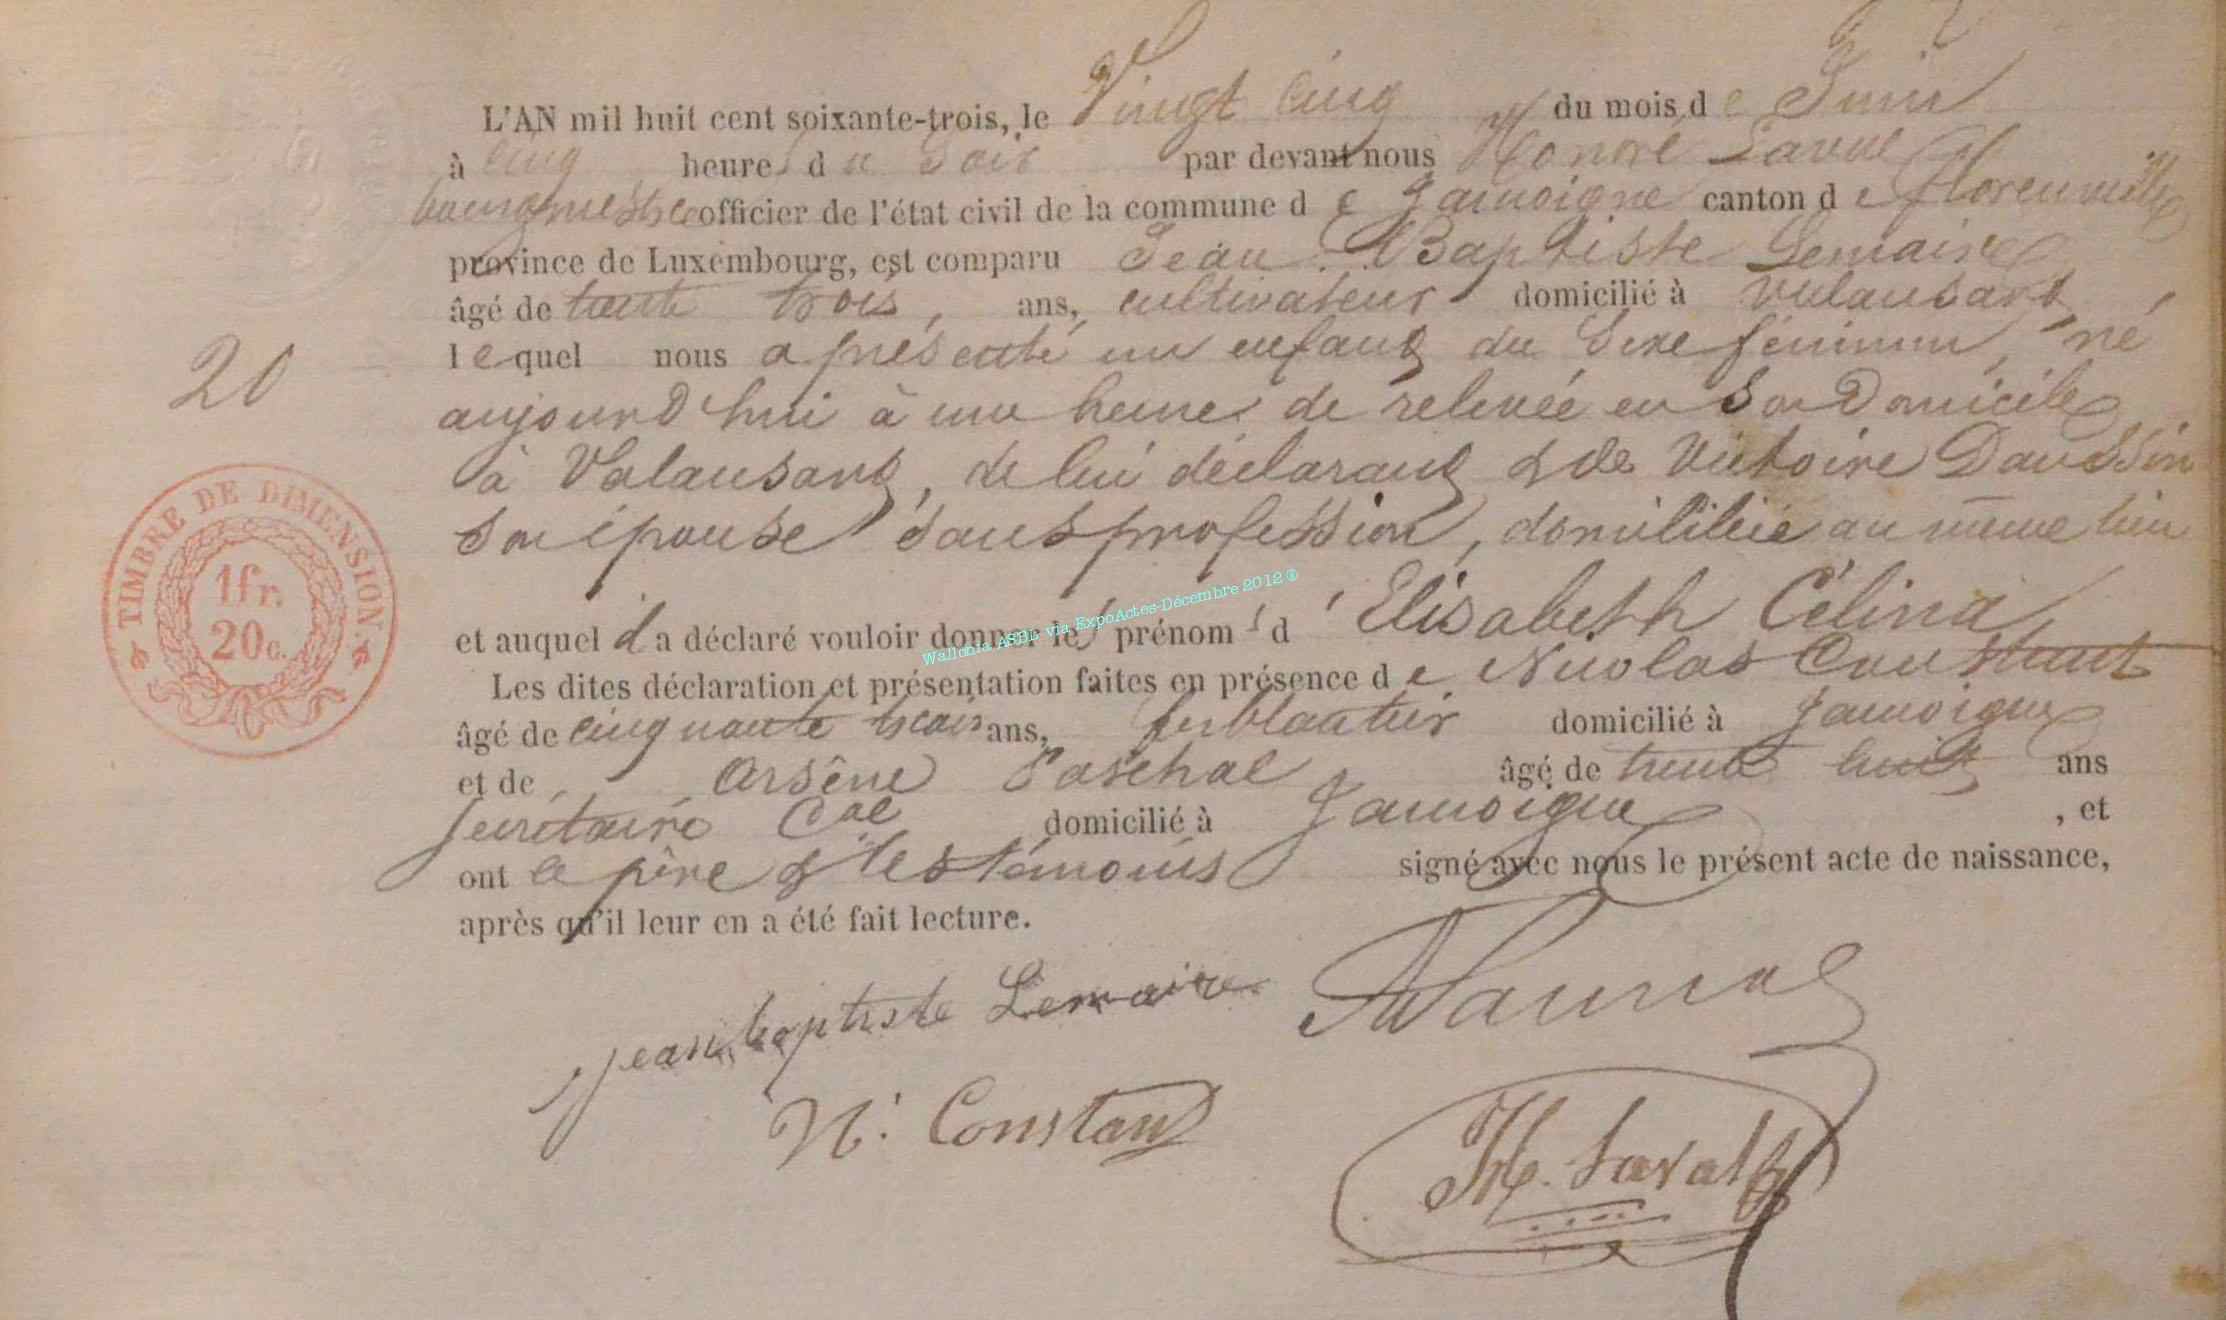 L'AN mil huit cent soixante-trois, le Vingt cinq du mois de Juin
à cinq heures du Soir par devant nous Honoré Laval
bourgmestre officier de l'état civil de la commune de Jamoigne canton de Florenville
province de Luxembourg, est comparu Jean Baptiste Lemaire
âgé de trente trois, ans, cultivateur domicilié à Valansart,
lequel nous a présenté un enfant du Sexe féminin, né
aujourd'hui à une heure de relevée en Son Domicile
à Valansart, de lui déclarant & de Victoire Daussin
Son épouse Sans profession, domiliciée au même lieu
et auquel il a déclaré vouloir donner les prénoms d' Elisabeth Célina
Les dites déclaration et présentation faites en présence de Nicolas Constant
âgé de cinquante trois ans, ferblantier domicilié à Jamoigne
et de Arsène Paschal âgé de trente huit ans
Secrétaire Cal domicilié à Jamoigne, et
ont le père & les témoins signé avec nous le présent acte de naissance,
après qu'il leur en a été fait lecture.
20
TIMBRE DE DIMENSION.
1fr.
20c.
Wallonia ASBL via ExpoActes-Décembre 2012 ®
jean baptiste Lemaire
N. Constant
H. Laval